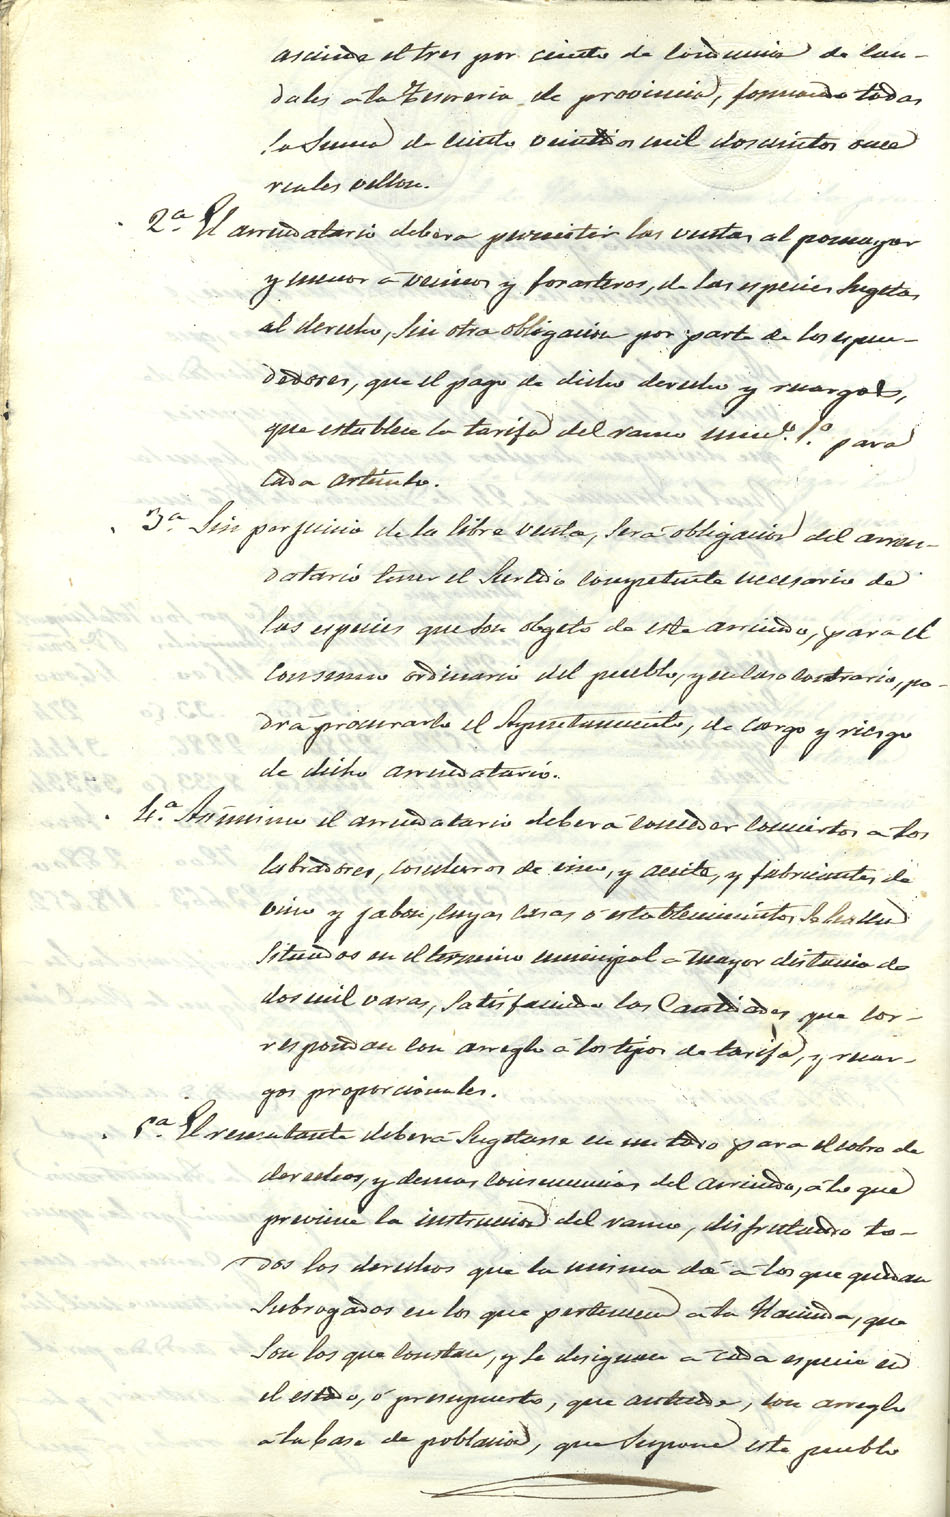 asciende el tres por ciento de conduccion de cau-
dales a la Tesoreria de provincia, formando todas
la Suma de ciento veintidos mil doscientos once
reales vellon.
2.ª El arrendatario debera permitir las ventas al pormayor
y menor á vecinos y forasteros, de las especies Sugetas
al derecho, Sin otra obligacion por parte de los espen-
dedores, que el pago de dicho derecho y recargos,
que establece la tarifa del ramo num.º 1.º para
cada articulo.
3.ª Sin perjuicio de la libre venta, Será obligacion del arren-
datario tener el Surtido competente necesario de
las especies que Son objeto de este arriendo, para el
consumo ordinario del pueblo, y en caso contrario, po-
drá procurarlo el Ayuntamiento, de cargo y riesgo
de dicho arrendatario.
4.ª Asimismo el arrendatario deberá conceder conciertos a los
labradores, cosecheros de vino, y aceite, y fabricantes de
vino y jabon, cuyas casas o establecimientos Se hallen
Situados en el termino municipal a mayor distancia de
dos mil varas, Satisfaciendo las Cantidades que cor-
respondan con arreglo á los tipos de tarifa, y recar-
gos proporcionales.
5.ª El rematante deberá Sugetarse en un todo para el cobro de
derechos, y demas consecuencias del arriendo, á lo que
previene la instruccion del ramo, disfrutando to-
dos los derechos que la misma dá á los que quedan
Subrogados en los que pertenecen a la Hacienda, que
Son los que constan, y Se designan a cada especie en
el estado, ó presupuesto, que antecede, con arreglo
a la base de poblacion, que Supone este pueblo